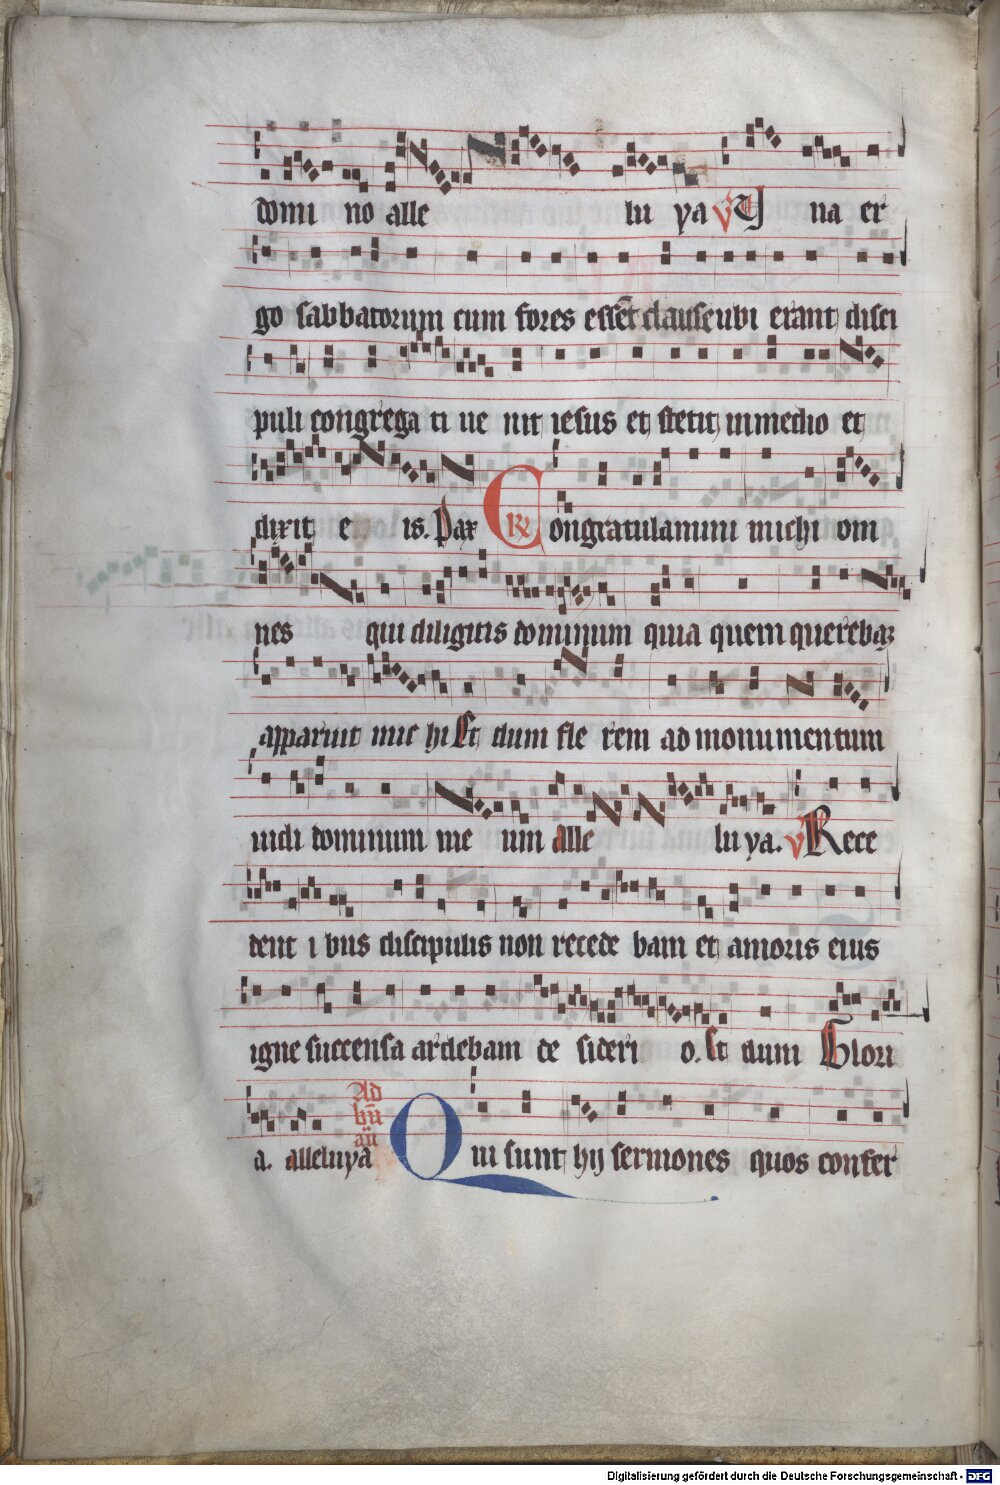 domi no alle lu ya V Una er
go sabbatorum cum fores essēt clause ubi erant disci
puli congrega ti ue nit iesus et stetit in medio et
dixit e is. Pax R Congratulamini michi om
nes qui diligitis dominum quia quem querebaꝫ
apparuit mic hi Et dum fle rem ad monumentum
uidi dominum me um alle lu ya. V Rece
dent i bus discipulis non recede bam et amoris eius
igne succensa ardebam de sideri o. Et dum Glori
a. alleluya Ad bn̄ an̄ Qui sunt hij sermones quos confer
Digitalisierung gefördert durch die Deutsche Forschungsgemeinschaft - DFG